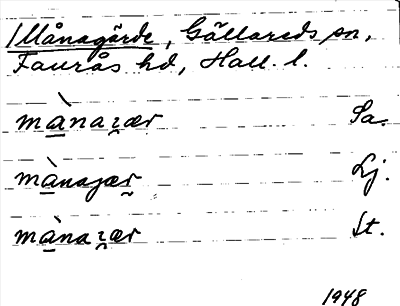 Månagärde, Gällareds sn,
Faurås hd, Hall. l.
mànaʐær Sa.
mànajær Lj.
mànaʐær St.
1948